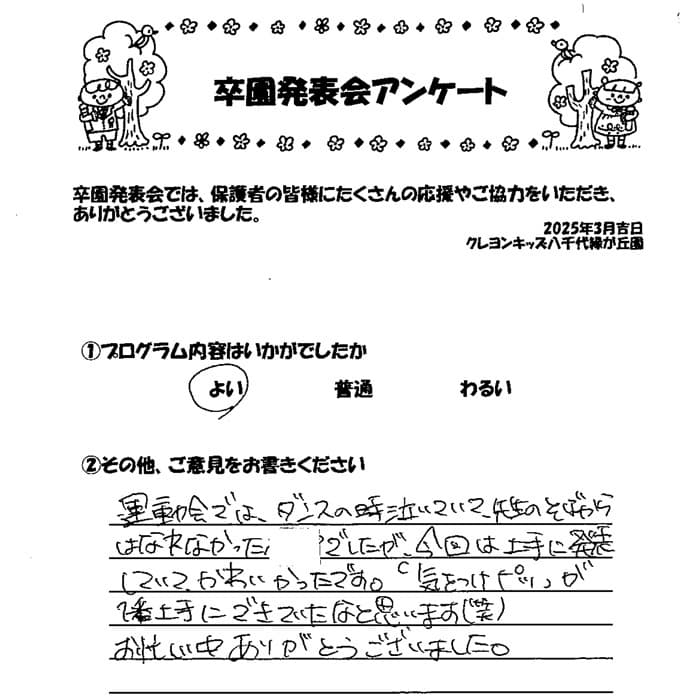 卒園発表会アンケート
卒園発表会では、保護者の皆様にたくさんの応援やご協力をいただき、
ありがとうございました。
2025年3月吉日
クレヨンキッズ八千代緑が丘園
①プログラム内容はいかがでしたか
よい 普通 わるい
②その他、ご意見をお書きください
運動会では、ダンスの時泣いていて、先生のそばから
はなれなかった でしたが、今回は上手に発表
していて、かわいかったです。「気をつけピッ」が
1番上手にできていたなと思います(笑)
お忙い中ありがとうございました。